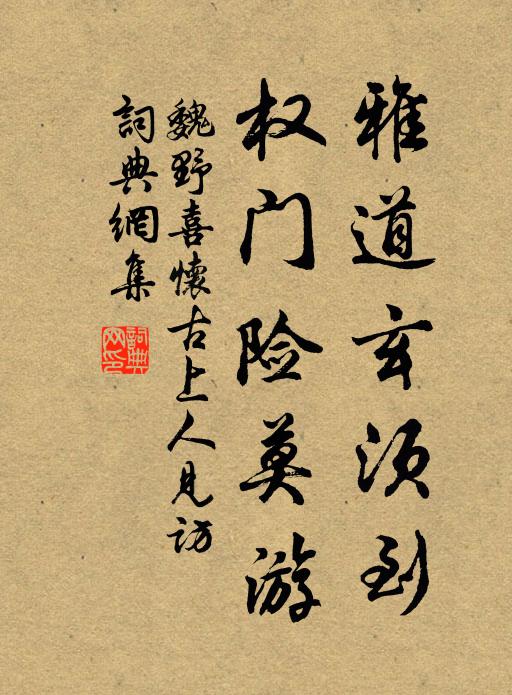 雅道玄须到
权门险莫游
魏野喜懷古上人见访
詞典網集
詞典网印